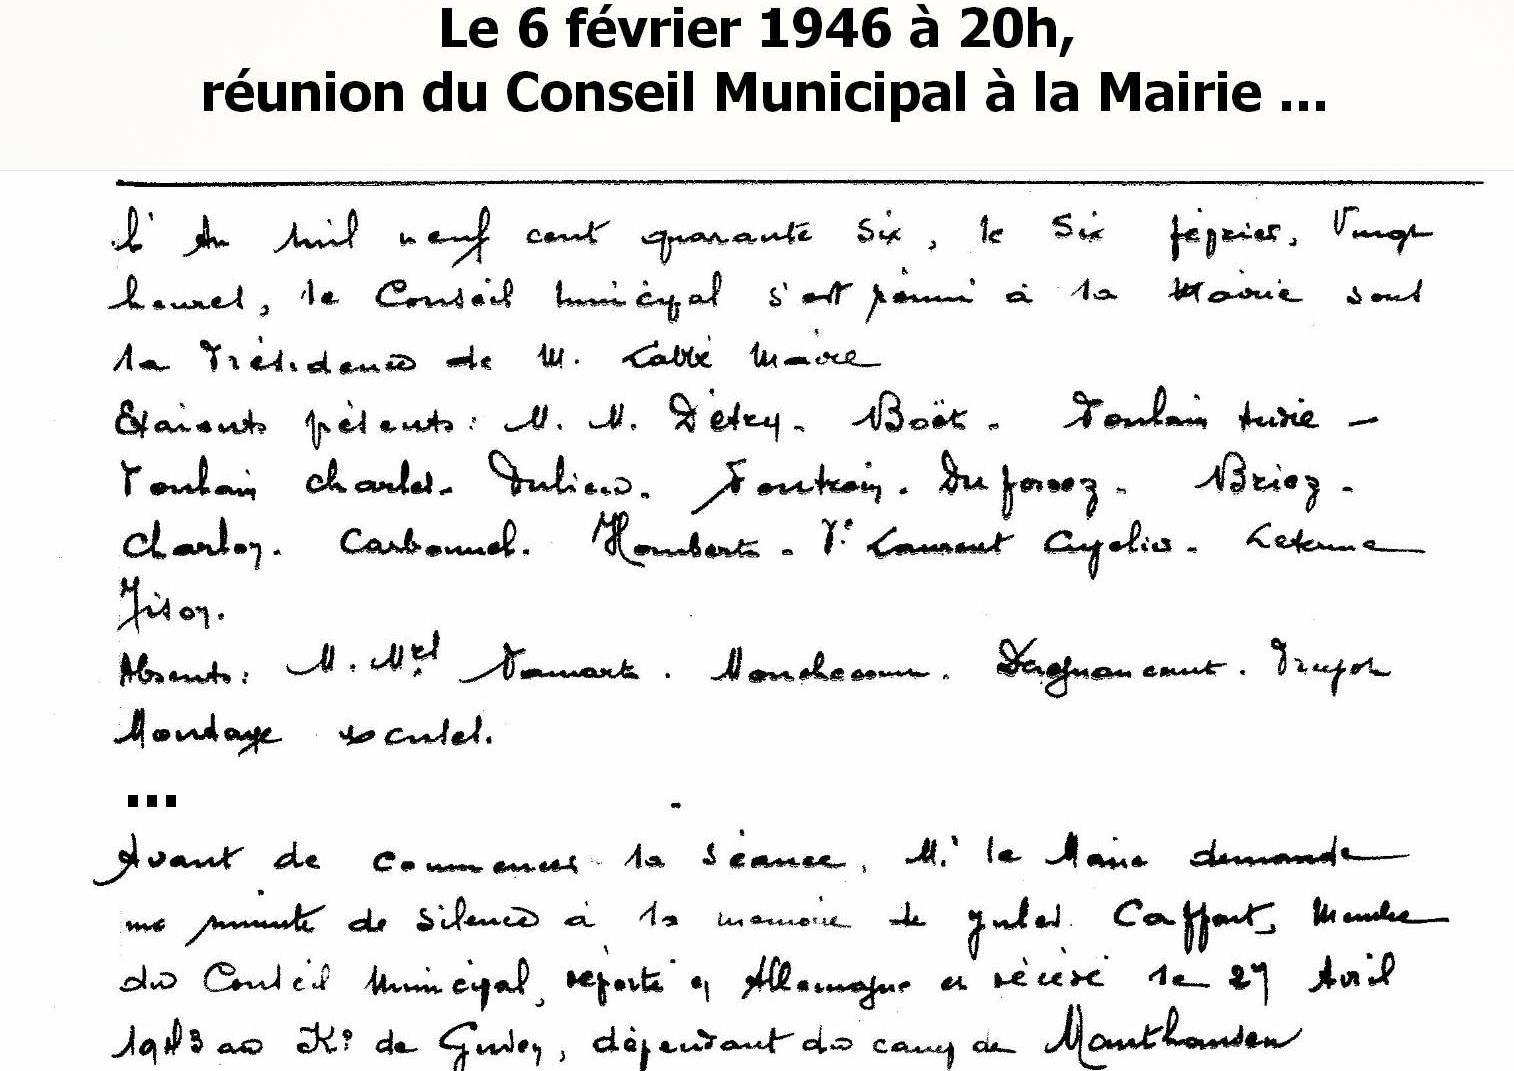 Le 6 février 1946 à 20h,
réunion du Conseil Municipal à la Mairie ...
L' An mil neuf cent quarante six, le six février, Vingt
heures, le Conseil municipal s'est réuni à la Mairie sous
la Présidence de M. Labbé Maire
Etaients présents: M. M. Détry. Boët. Poulain
Poulain Charles. Dulieu. Fontrain. Dufossez. Briez.
Charloy. Carbonnel. Hombert. Laurent Letenne
Absents: M. M. Damart. Mondecourt.
Mondaye
...
Avant de commencer la séance, M. le Maire demande
une minute de silence à la mémoire de Jules Caffart, Membre
du Conseil Municipal, déporté en Allemagne et décédé le 27 Avril
1943 au Kº de Gusen, dépendant du camp de Mauthausen